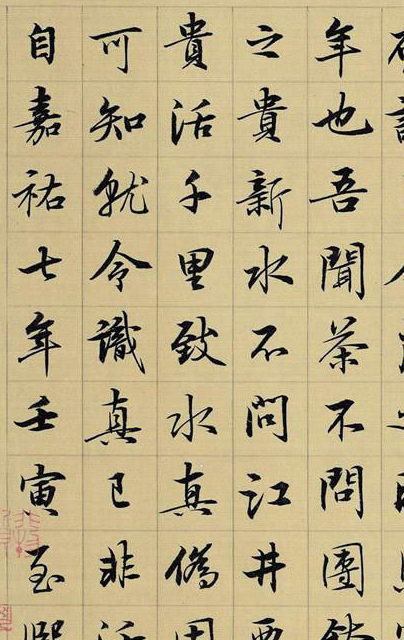 年也吾聞茶不問團
之貴新水不問江井要
貴活千里致水真僞
可知就令識真已非活
自嘉祐七年壬寅至熙